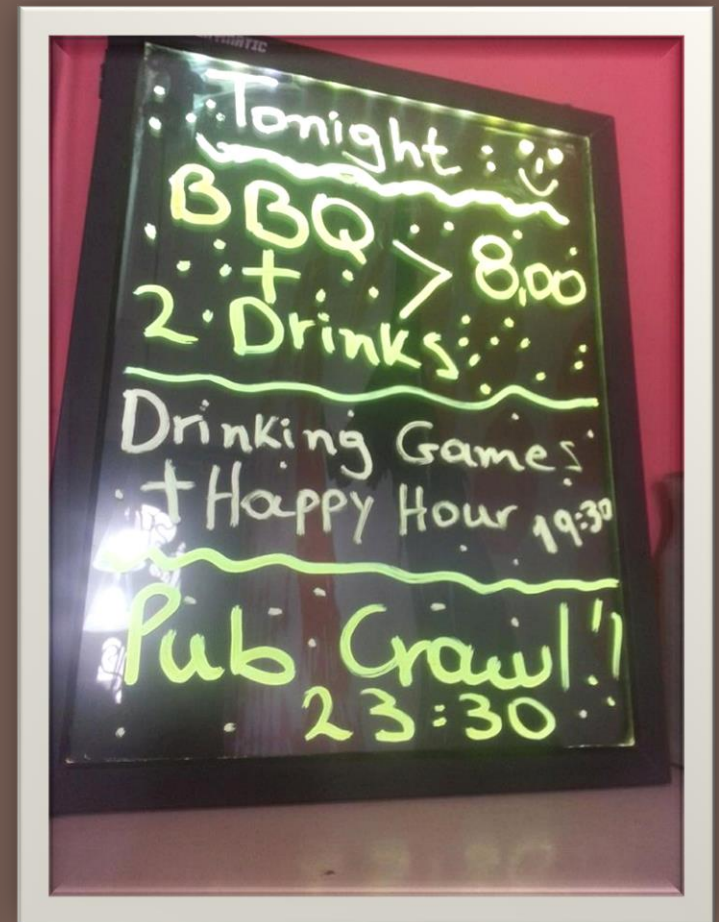 Tonight :
BBQ
+ > 8,00
2 Drinks
Drinking Games
+ Happy Hour 19:30
Pub Crawl!!
23:30